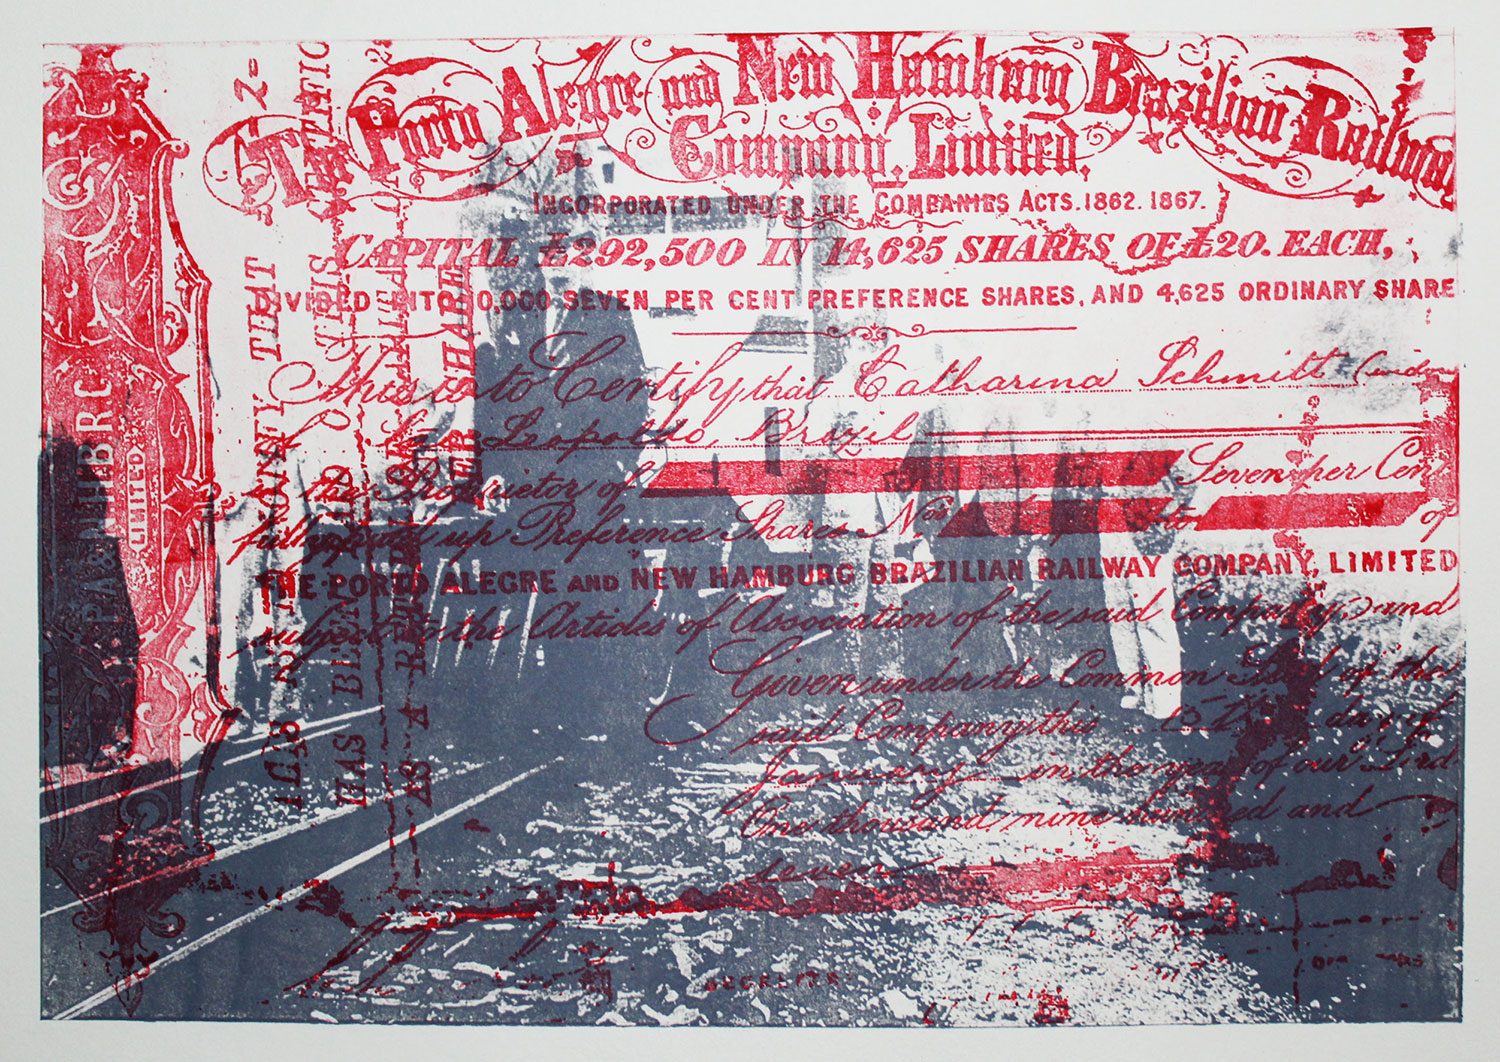 The Porto Alegre and New Hamburg Brazilian Railway
Company, Limited,
INCORPORATED UNDER THE COMPANIES ACTS. 1862. 1867.
CAPITAL £292,500 IN 14,625 SHARES OF £20. EACH,
DIVIDED INTO 10,000 SEVEN PER CENT PREFERENCE SHARES, AND 4,625 ORDINARY SHARE
This is to Certify that Catharina Schmitt
Leopoldo Brazil
is the Proprietor of Seven per Cen
fully paid up Preference Shares Nos to of
THE PORTO ALEGRE AND NEW HAMBURG BRAZILIAN RAILWAY COMPANY, LIMITED
subject to the Articles of Association of the said Company, and
Given under the Common Seal of the
said Company this day of
January in the year of our Lord
One thousand nine hundred and
seven
PA&NHBRC
LIMITED
MONEY THAT
THIS
HAS BEEN
AS A
PER SHARE